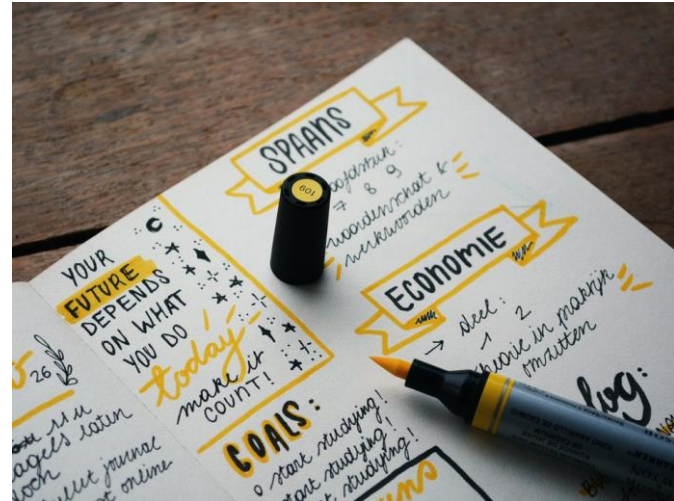 SPAANS
7 8 9
woordenschat &
werkwoorden
ECONOMIE
→ deel:
1 2
theorie in praktijk
omzetten
109
YOUR
FUTURE
DEPENDS
ON WHAT
YOU DO
today
make it
COUNT!
GOALS:
o start studying!
start studying!
studying!
26
11 u
laten
bullet journal
online
log: